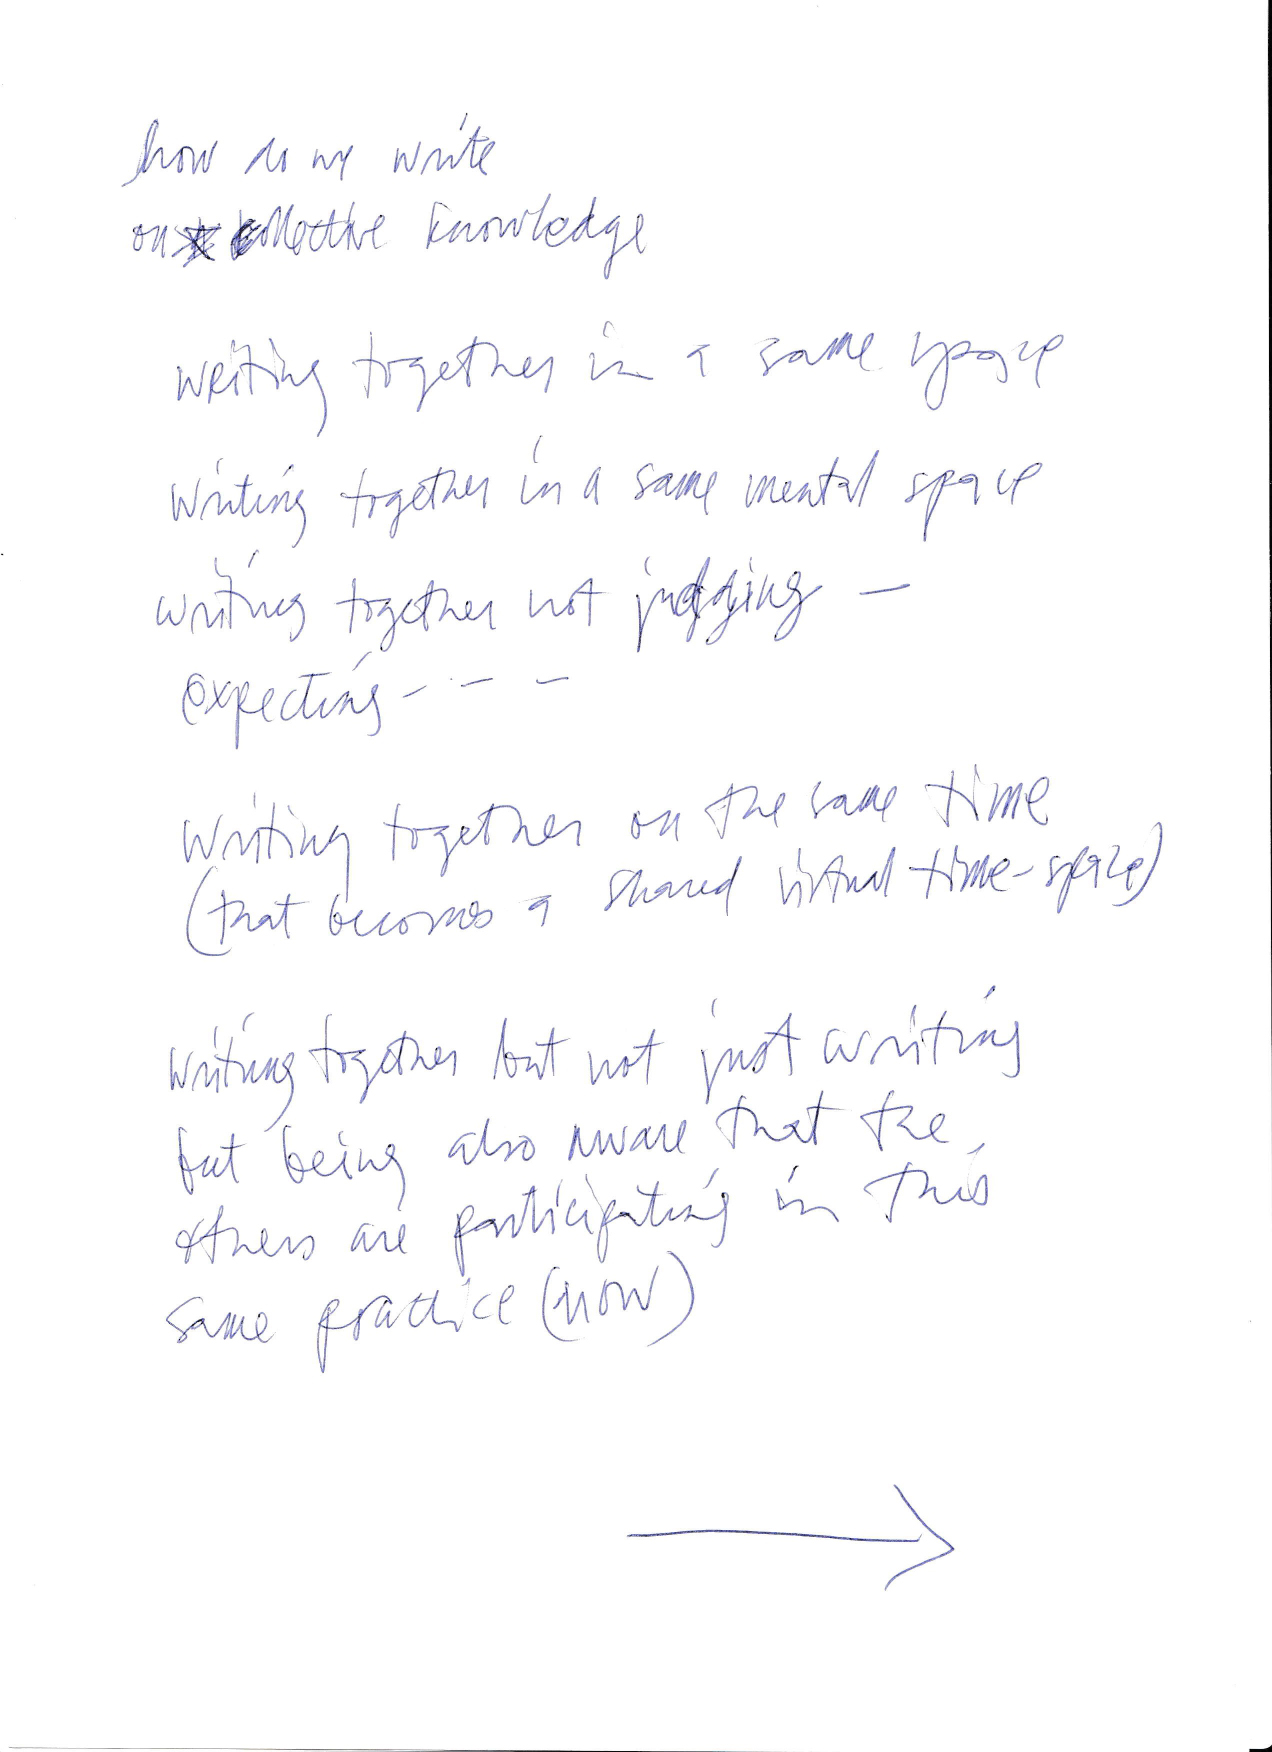 how do we write
on collective knowledge
writing together in a same space
writing together in a same mental space
writing together not judging —
expecting - - -
writing together on the same time
(that becomes a shared virtual time-space)
writing together but not just writing
but being also aware that the
others are participating in this
same practice (now)